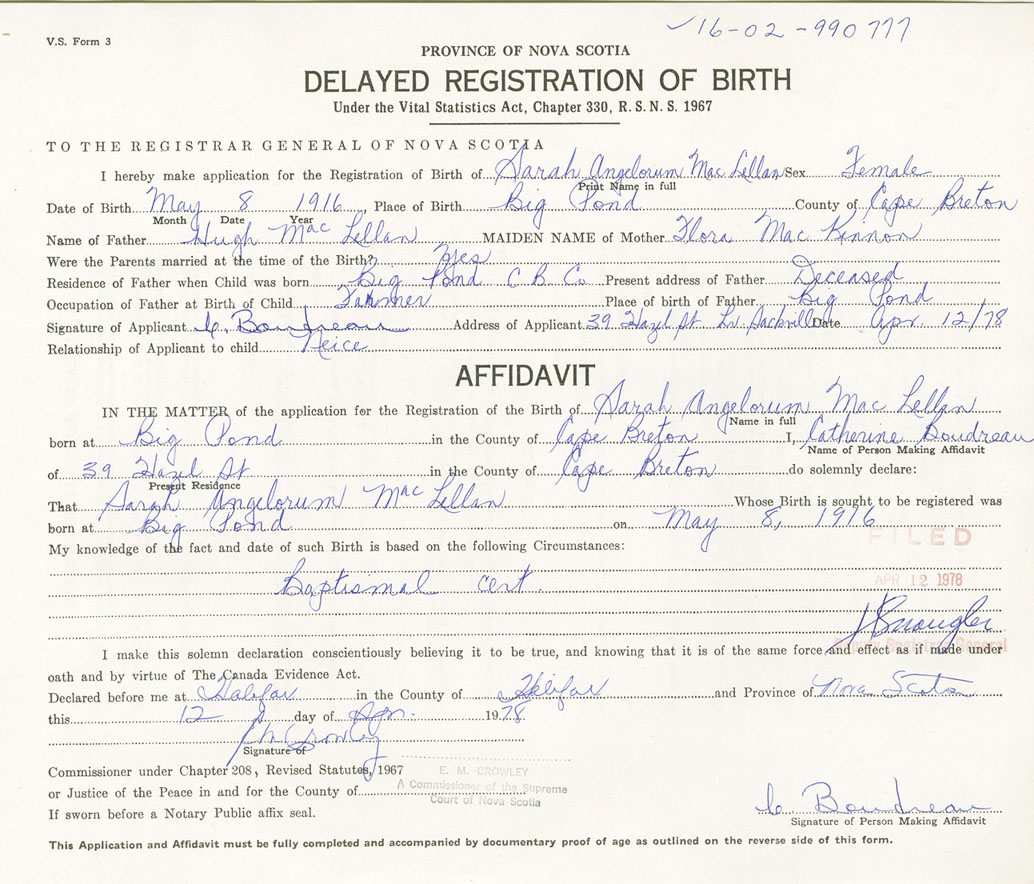 16-02-990777
V.S. Form 3
PROVINCE OF NOVA SCOTIA
DELAYED REGISTRATION OF BIRTH
Under the Vital Statistics Act, Chapter 330, R.S.N.S. 1967
TO THE REGISTRAR GENERAL OF NOVA SCOTIA
I hereby make application for the Registration of Birth of Sarah Angelorum Mac Lellan Sex Female
Print Name in full
Date of Birth May 8 1916, Place of Birth Big Pond County of Cape Breton
Month Date Year
Name of Father Hugh Mac Lellan MAIDEN NAME of Mother Flora Mac Kinnon
Were the Parents married at the time of the Birth? Yes
Residence of Father when Child was born Big Pond C B Co Present address of Father Deceased
Occupation of Father at Birth of Child Farmer Place of birth of Father Big Pond
Signature of Applicant C. Boudreau Address of Applicant 39 Hazel St Lr. Sackville Date Apr. 12/78
Relationship of Applicant to child Neice
AFFIDAVIT
IN THE MATTER of the application for the Registration of the Birth of Sarah Angelorum Mac Lellan
Name in full
born at Big Pond in the County of Cape Breton I, Catherine Boudreau
Name of Person Making Affidavit
of 39 Hazel St in the County of Cape Breton do solemnly declare:
Present Residence
That Sarah Angelorum Mac Lellan Whose Birth is sought to be registered was
born at Big Pond on May 8, 1916
My knowledge of the fact and date of such Birth is based on the following Circumstances:
FILED
Baptismal cert.
APR 12 1978
I make this solemn declaration conscientiously believing it to be true, and knowing that it is of the same force and effect as if made under
oath and by virtue of The Canada Evidence Act.
Declared before me at Halifax in the County of Halifax and Province of Nova Scotia
this 12 day of Apr. 1978
EM Crowley
Signature of
Commissioner under Chapter 208, Revised Statutes, 1967
E. M. CROWLEY
A Commissioner of the Supreme
Court of Nova Scotia
or Justice of the Peace in and for the County of
If sworn before a Notary Public affix seal.
C. Boudreau
Signature of Person Making Affidavit
This Application and Affidavit must be fully completed and accompanied by documentary proof of age as outlined on the reverse side of this form.